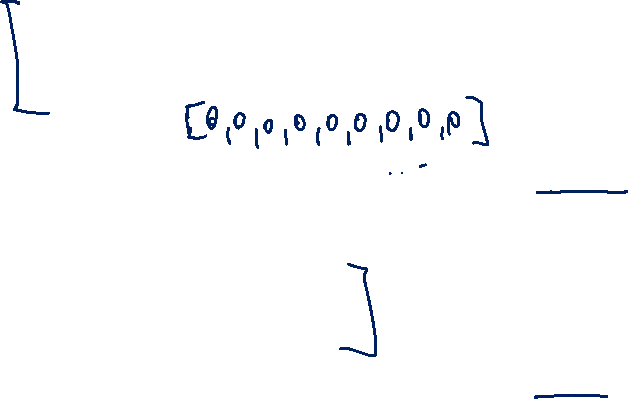 [
[0,0,0,0,0,0,0,0,0]
...
]